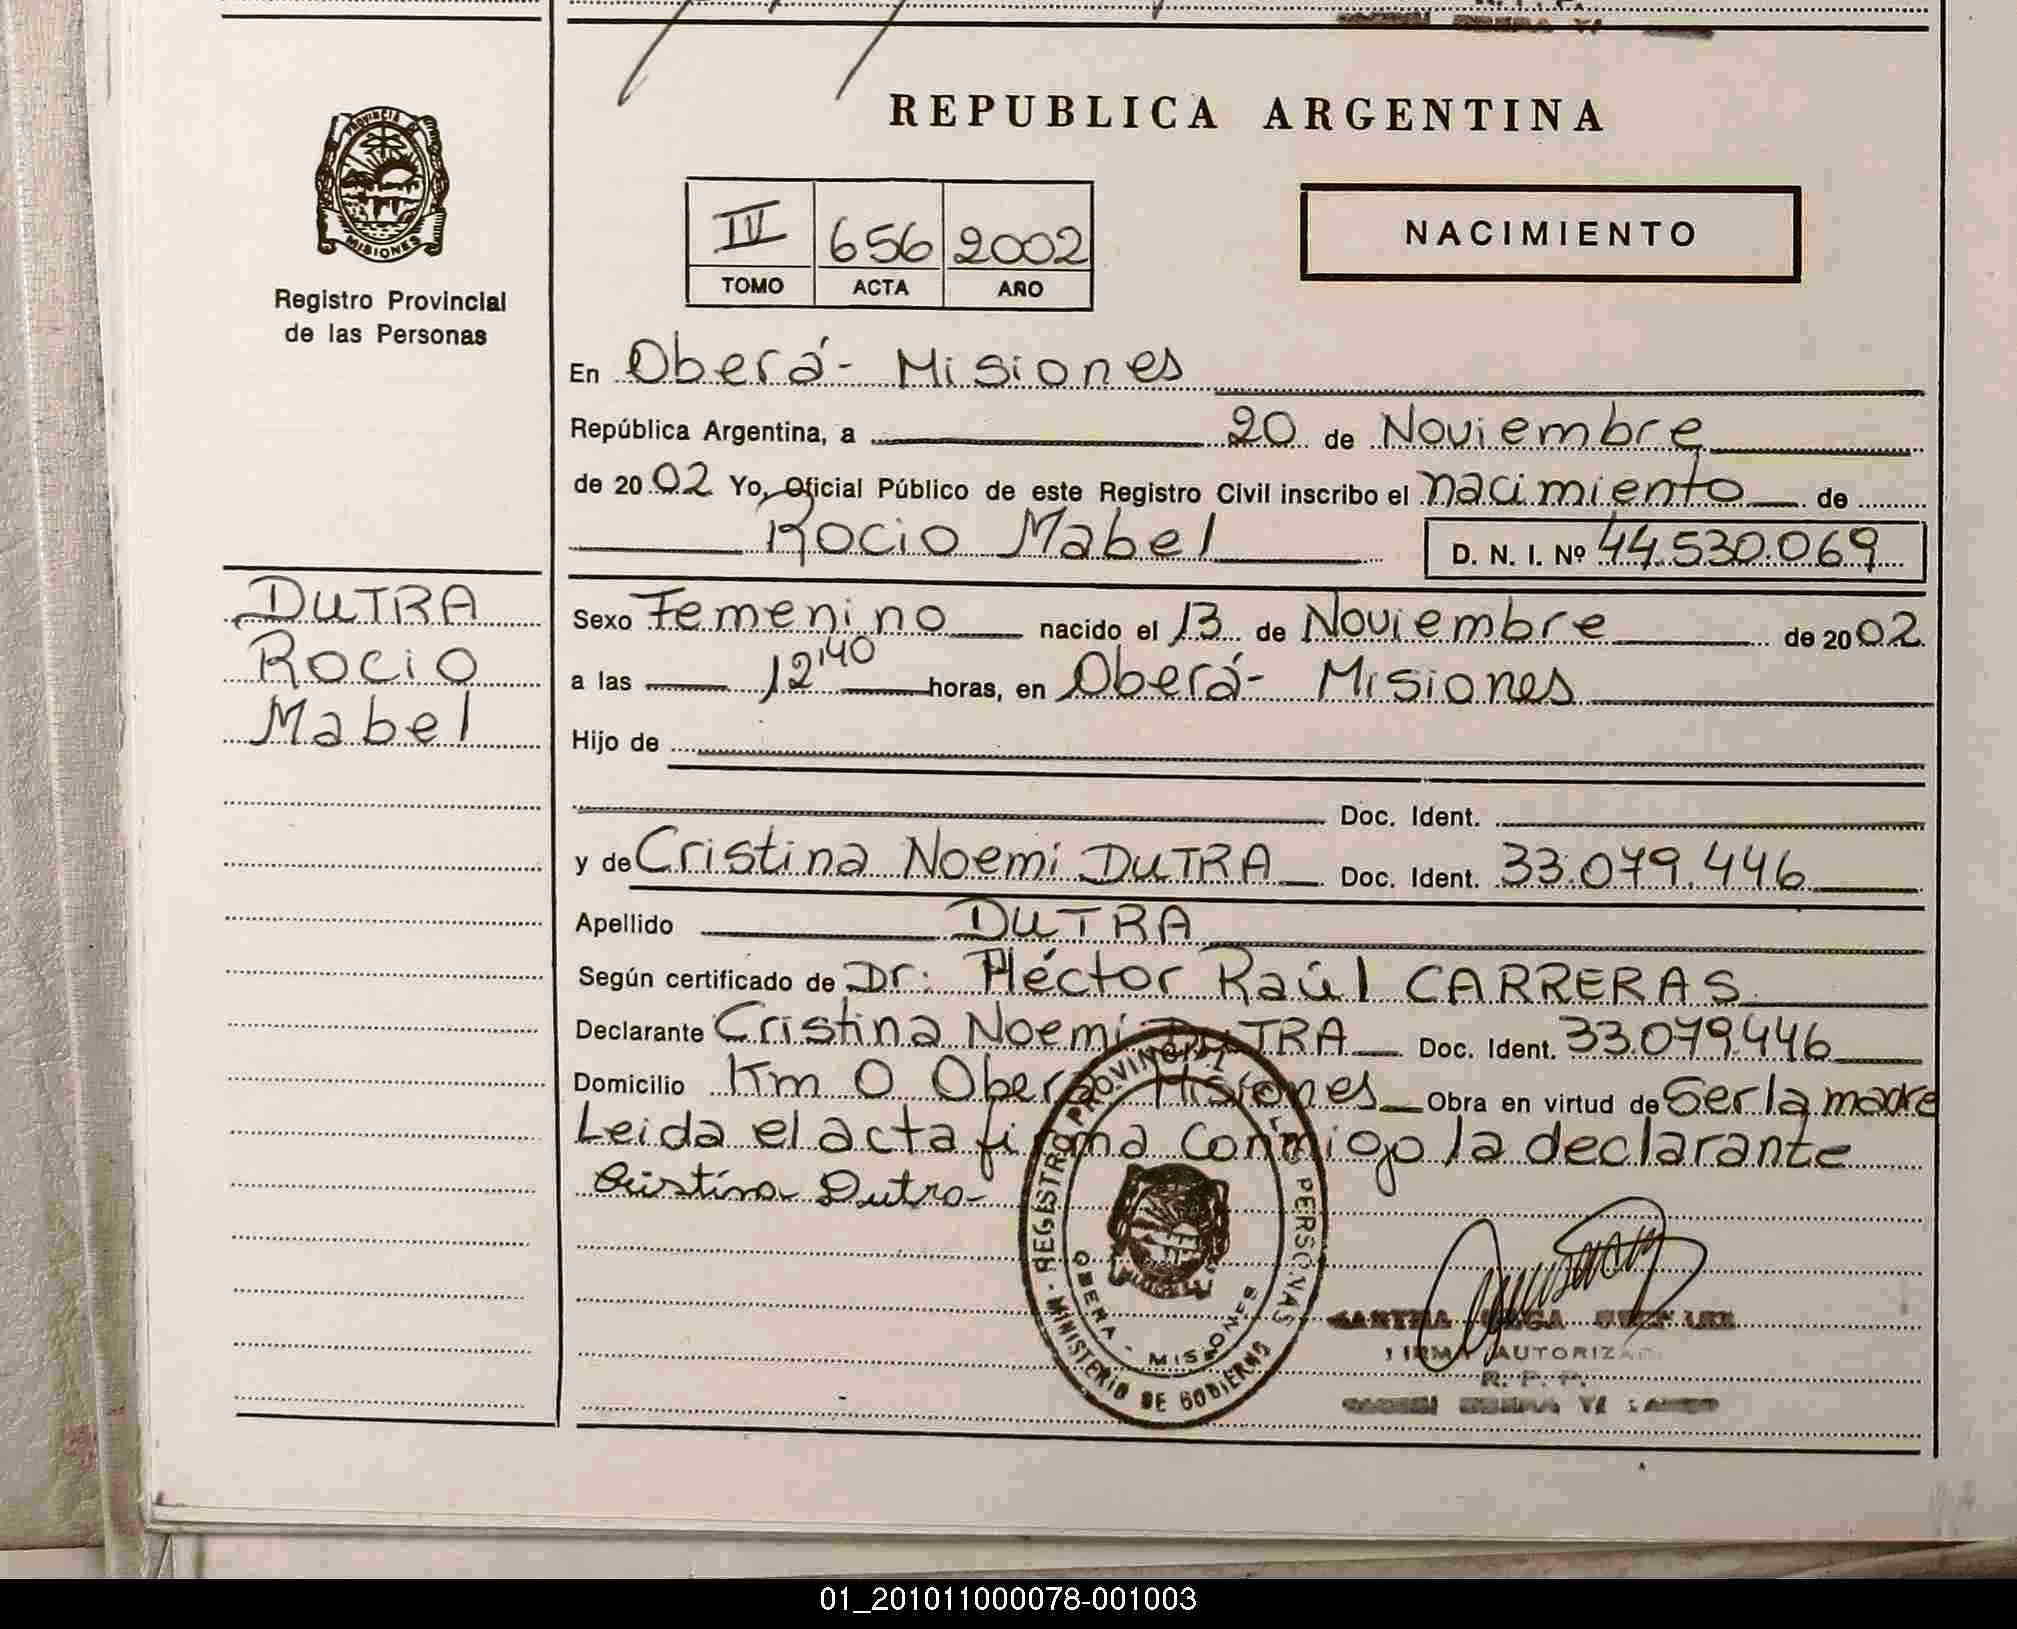 REPUBLICA ARGENTINA
PROVINCIA DE
MISIONES
Registro Provincial
de las Personas
IV 656 2002
TOMO ACTA AÑO
NACIMIENTO
En Oberá- Misiones
República Argentina, a 20 de Noviembre
de 2002 Yo, Oficial Público de este Registro Civil inscribo el nacimiento de
Rocio Mabel D. N. I. Nº 44.530.069
DUTRA
Rocio
Mabel
Sexo Femenino nacido el 13 de Noviembre de 2002
a las 12'40 horas, en Oberá- Misiones
Hijo de
Doc. Ident.
y de Cristina Noemi DUTRA Doc. Ident. 33.079.446
Apellido DUTRA
Según certificado de Dr: Héctor Raúl CARRERAS
Declarante Cristina Noemi DUTRA Doc. Ident. 33.079.446
Domicilio Km 0 Oberá Misiones Obra en virtud de Ser la madre
Leida el acta firma conmigo la declarante
Cristina Dutra
REGISTRO PROVINCIAL PERSONAS
MINISTERIO DE GOBIERNO
OBERA - MISIONES
FIRMA AUTORIZADA
R. P. P.
01_201011000078-001003